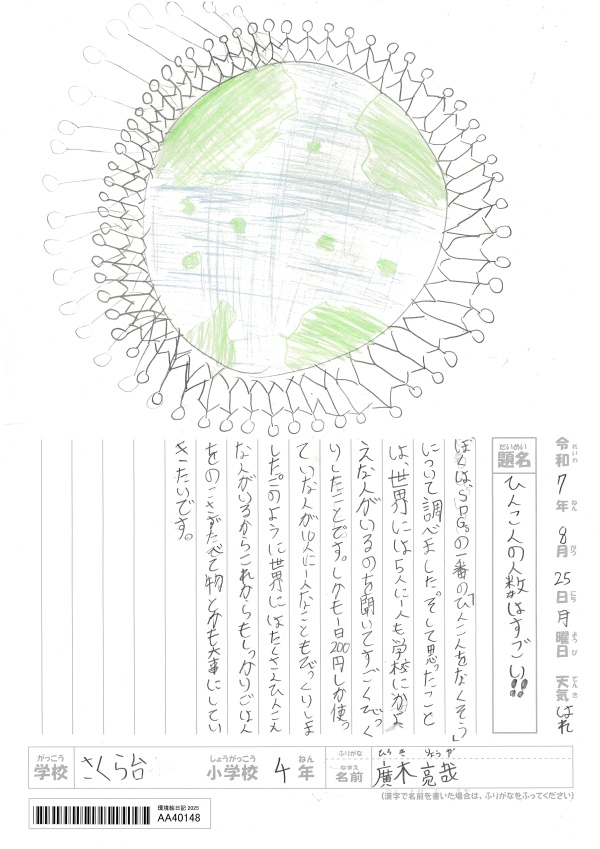 令和7年8月25日月曜日 天気 はれ
れいわ ねん がつ にち ようび てんき
だいめい
題名
ひんこ人の人数はすごい!!
ぼくは、SDGsの一番の「ひんこんをなくそう」
について調べました。そして思ったこと
は、世界には5人に一人も学校にかよ
えな人がいるのを聞いてすごくびっく
りしたことです。しかも一日200円しか使っ
ていな人が10人に一人なこともびっくりしま
した。このように世界にはたくさんひんこん
な人がいるからこれからもしっかりごはん
をのこさずたべて物とかも大事にしてい
きたいです。
がっこう しょうがっこう ねん ふりがな ひろ き りょう や
学校 さくら台 小学校 4年 なまえ 名前 廣木 亮哉
(漢字で名前を書いた場合は、ふりがなをふってください)
環境絵日記2025
AA40148